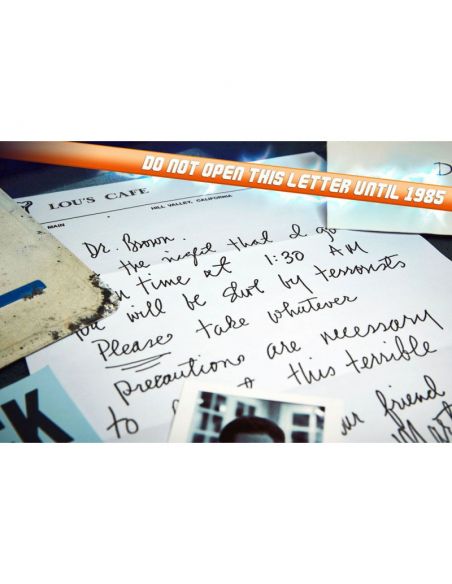 DO NOT OPEN THIS LETTER UNTIL 1985
D
LOU'S CAFE
MAIN
HILL VALLEY, CALIFORNIA
Dr. Brown.
the night that I go
time at 1:30 AM
you will be shot by terrorists
Please take whatever
precautions are necessary
to this terrible
friend
K